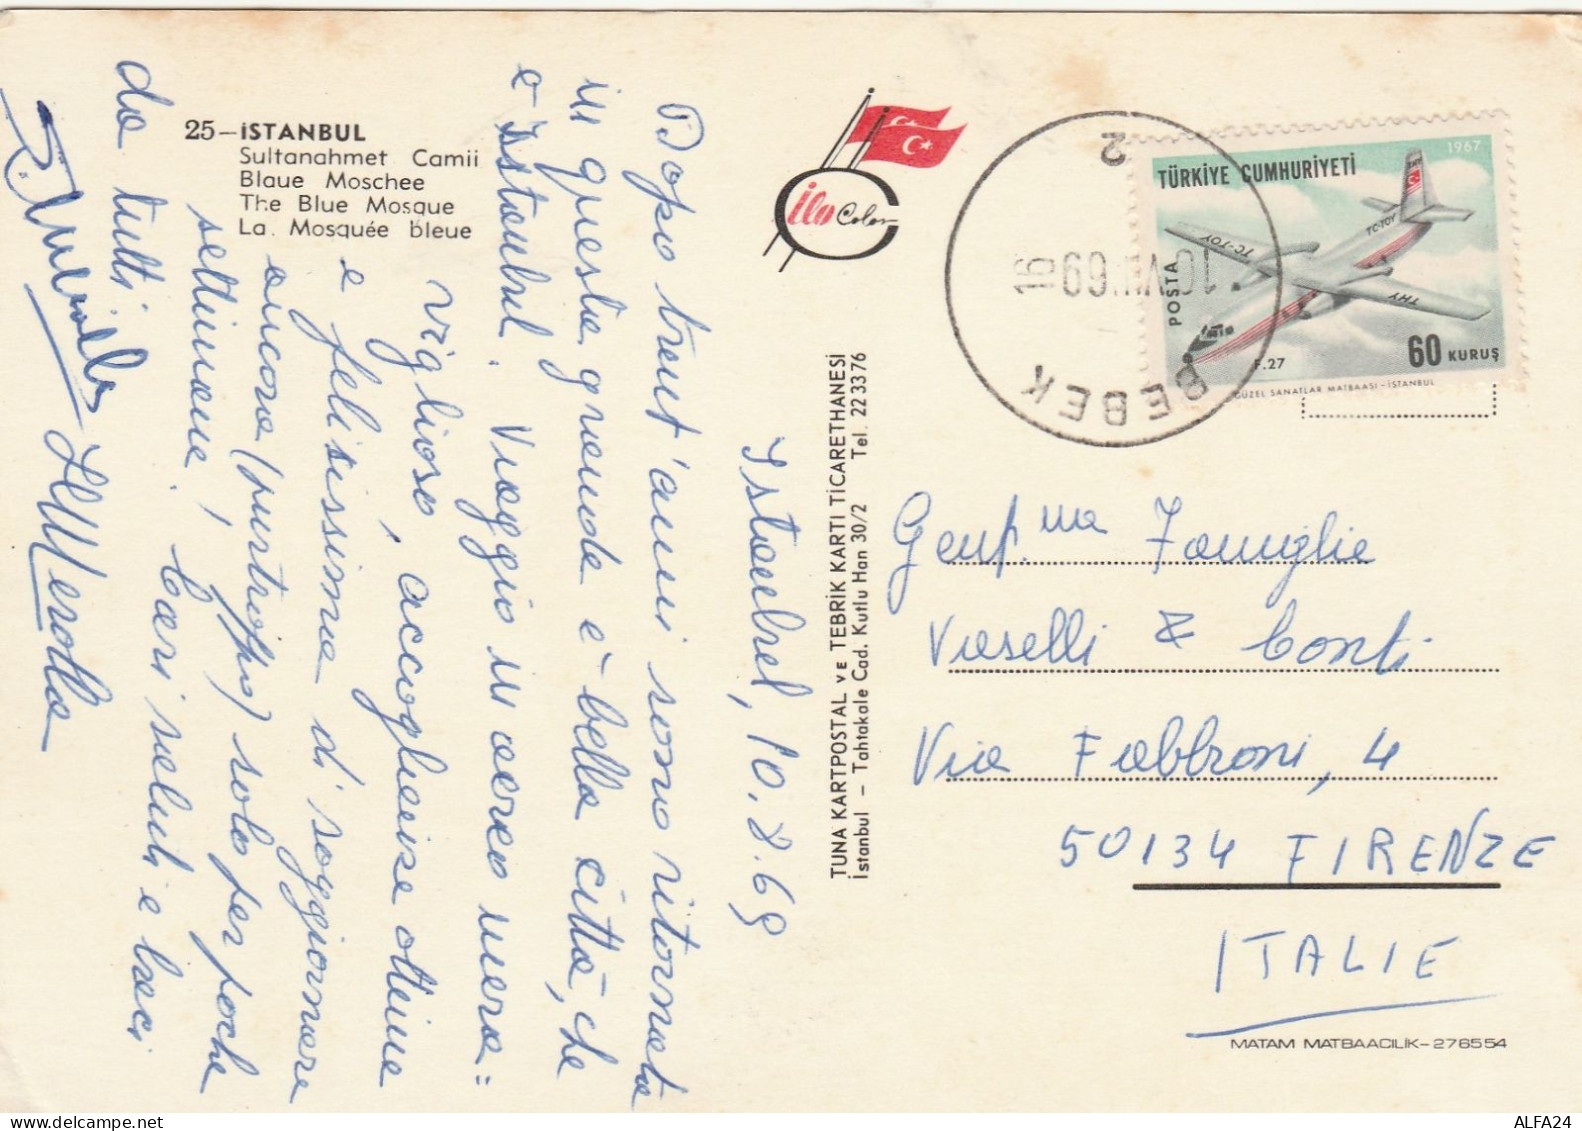 25 – İSTANBUL
Sultanahmet Camii
Blaue Moschee
The Blue Mosque
La Mosquée bleue
Istanbul, 10.8.69
Dopo trent'anni sono ritornata
in questa grande e bella città, che
è Istanbul. Viaggio in aereo mera=
viglioso, accoglienze ottime
e felicissima di soggiornare
ancora (purtroppo) solo per poche
settimane. Cari saluti e baci
da tutti
ilo Color
TUNA KARTPOSTAL VE TEBRİK KARTI TİCARETHANESİ
İstanbul – Tahtakale Cad. Kutlu Han 30/2 Tel. 22 33 76
1967
TÜRKİYE CUMHURİYETİ
POSTA
TC-TOY
TC-TOY
THY
F.27
60 KURUŞ
GÜZEL SANATLAR MATBAASI – İSTANBUL
BEBEK
2
16
Gent.ma Famiglia
Vaselli & Conti
Via Fabbroni, 4
50134 FIRENZE
ITALIE
MATAM MATBAACILIK – 276554
ALFA24